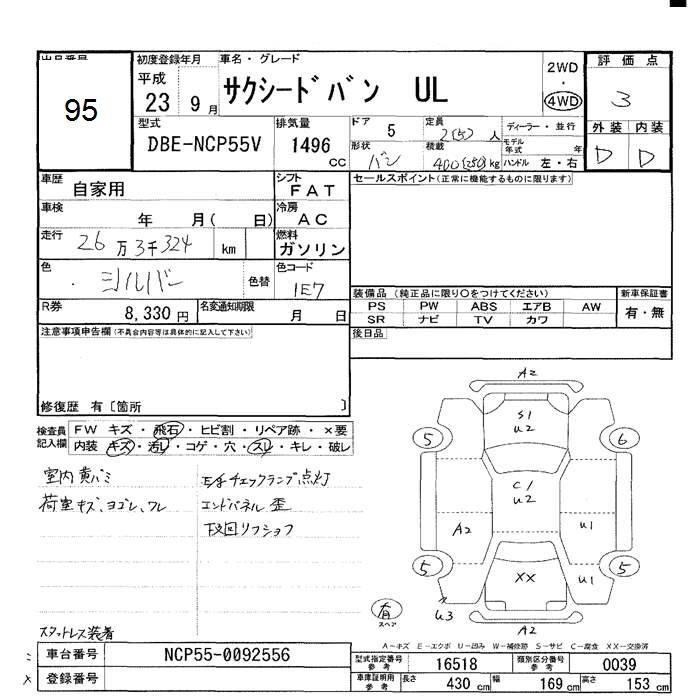 出品番号
95
初度登録年月
平成
23 9 月
車名・グレード
サクシードバン UL
2WD
・
4WD
評価点
3
外装 内装
D D
型式
DBE-NCP55V
排気量
1496
CC
ドア
5
定員
2(5) 人
ディーラー・並行
形状
バン
積載
400(250)kg
モデル
年式
年
ハンドル 左・右
車歴
自家用
シフト
FAT
セールスポイント(正常に機能するものに限ります)
車検
年 月( 日)
冷房
AC
走行
26万3千324 km
燃料
ガソリン
色
シルバー
色替
色コード
1E7
装備品 (純正品に限り○をつけてください)
新車保証書
PS PW ABS エアB AW
SR ナビ TV カワ
有・無
R券
8,330円
名変通知期限
月 日
後日品
注意事項申告欄(不具合内容等は具体的に記入して下さい)
修復歴 有〔箇所 〕
検査員
記入欄
FW キズ・飛石・ヒビ割・リペア跡・×要
内装 キズ・汚レ・コゲ・穴・スレ・キレ・破レ
室内黄バミ
荷室キズ、ヨゴレ、ワレ
チェックランプ点灯
エンドパネル歪
下回リ
スタットレス装着
A2
S1
U2
5
6
C1
U2
A2
U1
5
5
XX
U1
U3
A2
有
スペア
A-キズ E-エクボ U-凹み W-補修跡 S-サビ C-腐食 XX-交換済
車台番号
NCP55-0092556
登録番号
型式指定番号
参考
16518
類別区分番号
参考
0039
車庫証明用
参考
長さ
430 cm
幅
169 cm
高さ
153 cm